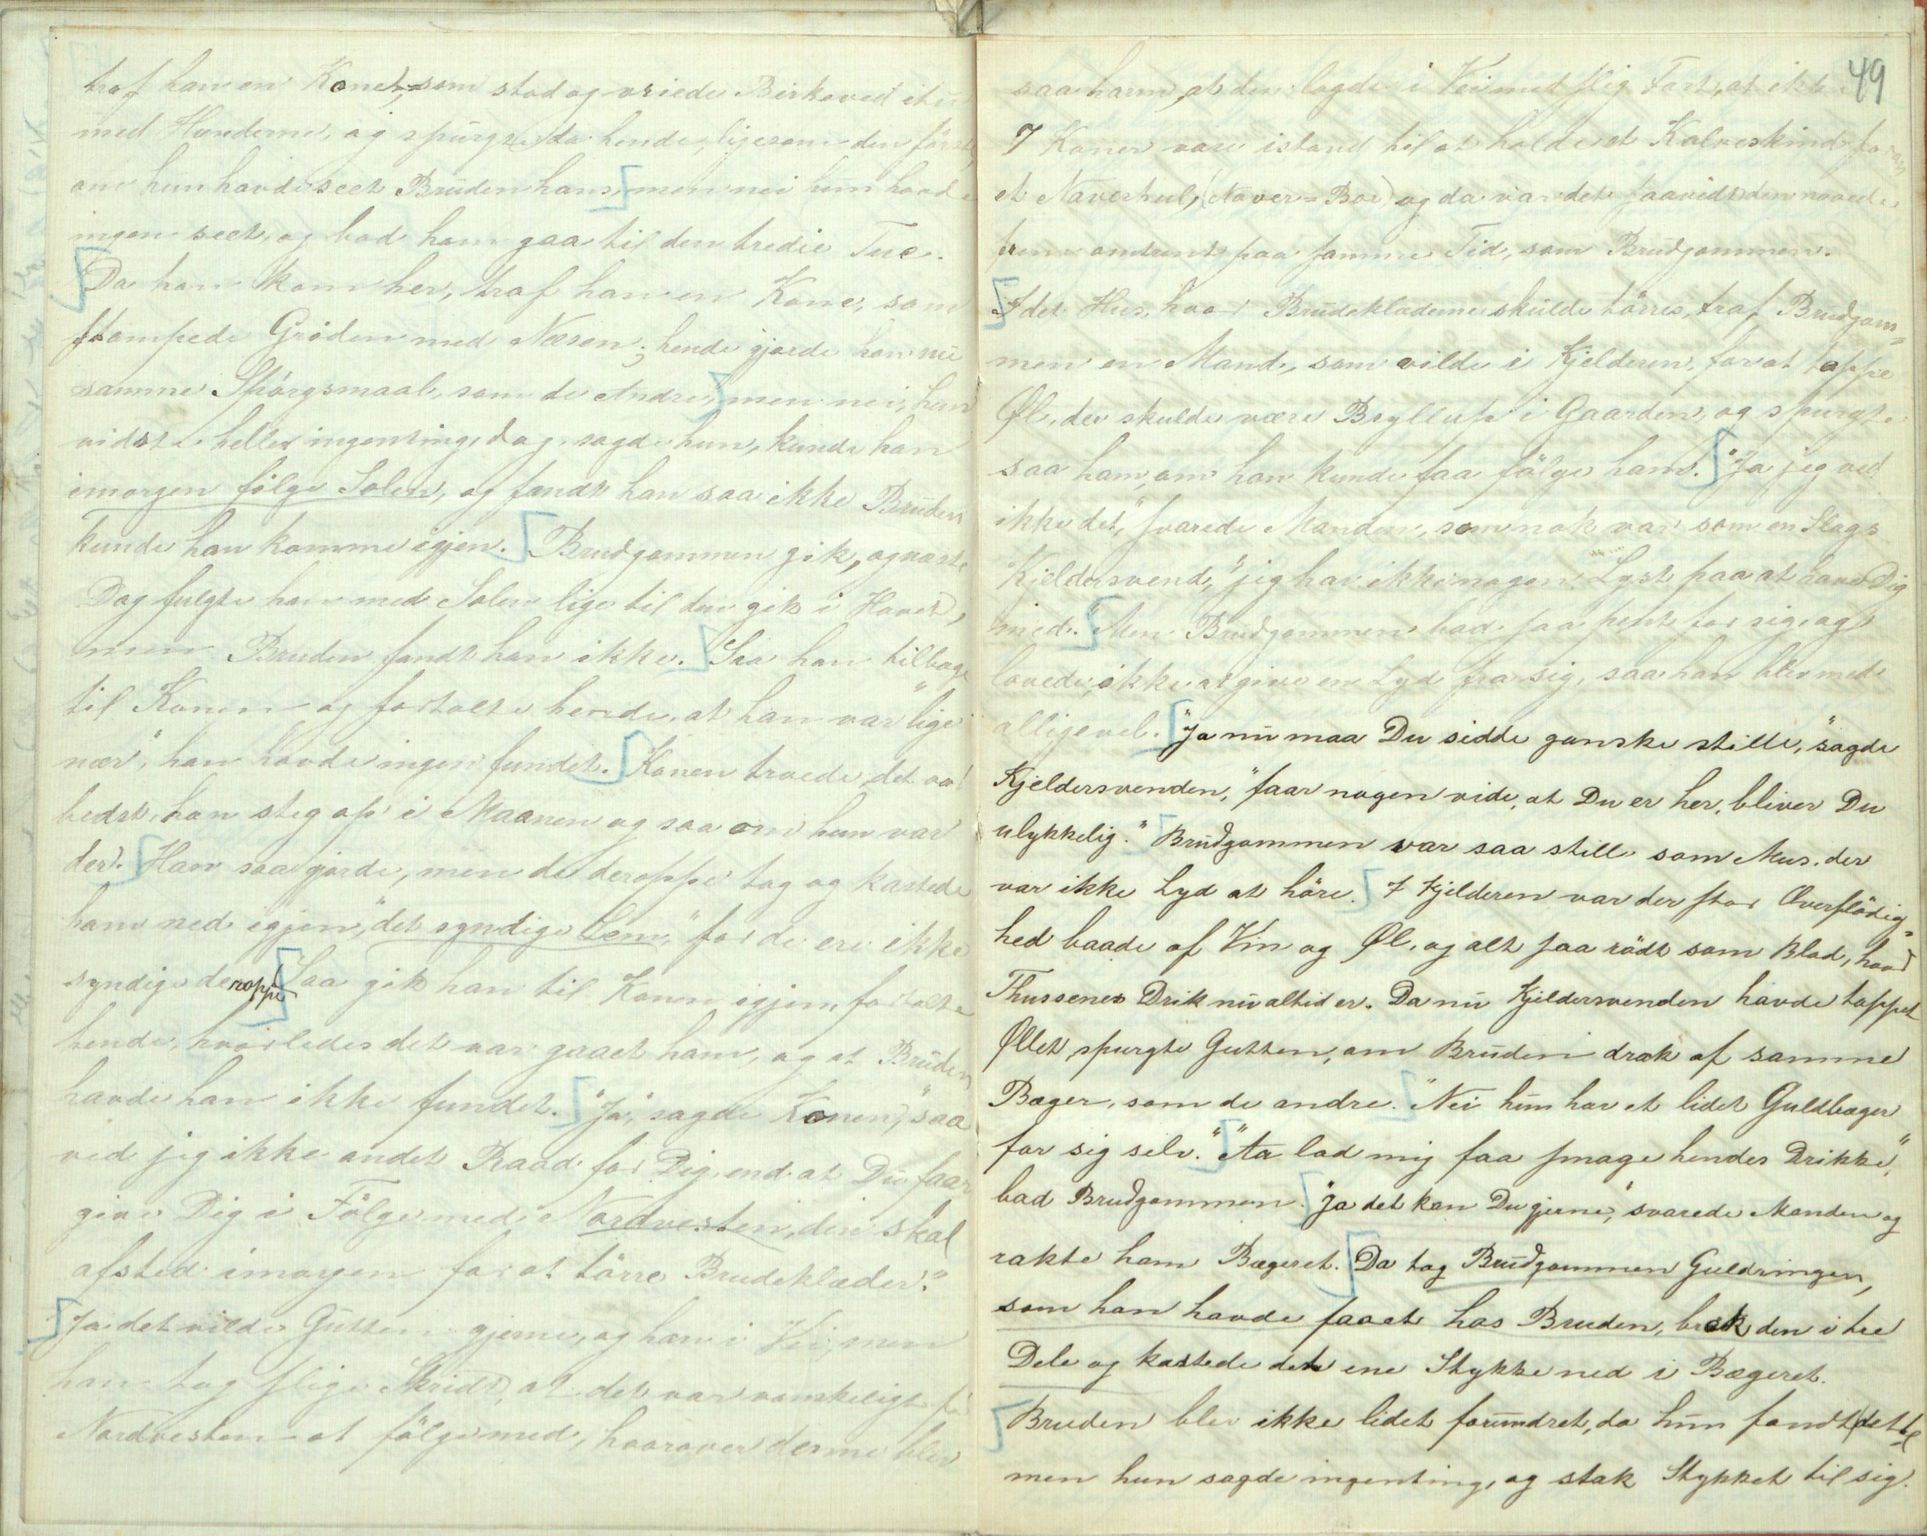 traf han en Kone, som stod og vriede Birkeved itu
med Hænderne, og spurgte da hende, ligesom den första,
om hun havde seet Bruden hans, men nei hun havde
ingen seet, og bad ham gaa til den tredie Tue.
Da han kom her, traf han en Kone, som
stampede Gröden med Næsen; hende gjorde han nu
samme Spörgsmaal, som de Andre, men nei, hun
vidste heller ingenting, dog sagde hun, kunde han
imorgen fölge Solen, og fandt han saa ikke Bruden
kunde han komme igjen. Brudgommen gik, og næste
Dag fulgte han med Solen lige til den gik i Havet,
men Bruden fandt han ikke. Saa han tilbage
til Konen og fortalte hende, at han var "lige
nær", han havde ingen fundet. Konen troede det var
bedst, han steg op i Maanen og saa om hun var
der. Han saa gjorde, men de deroppe tog og kastede
ham ned igjen, "det syndige Lem," for de ere ikke
syndige deroppe. Saa gik han til Konen igjen, fortalte
hende, hvorledes det var gaaet ham, og at Bruden
havde han ikke fundet. "Ja," sagde Konen, "saa
ved jeg ikke andet Raad for Dig, end at Du faar
give Dig i Fölge med Nordvesten, den skal
afsted imorgen for at törre Brudeklæder."
Ja det vilde Gutten gjerne, og han i Vei, men
han tog slige Skridt, at det var vanskeligt for
Nordvesten at fölge med, hvorover denne blev
49
saa harm, at den lagde i Vei med slig Fart, at ikke
7 Koner vare istand til at holde et Kalveskind for
et Naverhul, (Naver = Bor) og da var det saavidt den naaede
frem omtrent paa samme Tid, som Brudgommen.
I det Hus, hvor Brudeklæderne skulde törres, traf Brudgom=
men en Mand, som vilde i Kjelderen, for at tappe
Øl, der skulde være Bryllup i Gaarden, og spurgte
saa ham, om han kunde faa fölge ham. "Ja jeg ved
ikke det," svarede Manden, som nok var som en Slags
Kjeldersvend, "jeg har ikke nogen Lyst paa at have Dig
med." Men Brudgommen bad saa pent for sig, og
lovede, ikke at give en Lyd fra sig, saa han blev med
alligevel. "Ja nu maa Du sidde ganske stille," sagde
Kjeldersvenden, "faar nogen vide, at Du er her, bliver Du
ulykkelig." Brudgommen var saa still som Mus, der
var ikke Lyd at höre. I Kjelderen var der stor Overflödig=
hed baade af Vin og Øl, og alt saa rödt som Blod, hvor
Thussenes Drik nu altid er. Da nu Kjeldersvenden havde tappet
Øllet, spurgte Gutten, om Bruden drak af samme
Bæger, som de andre. "Nei hun har et lidet Guldbæger
for sig selv." "Aa lad mig faa smage hendes Drikke,"
bad Brudgommen. "Ja det kan Du gjerne," svarede Manden og
rakte ham Bægeret. Da tog Brudgommen Guldringen,
som han havde faaet hos Bruden, brak den i tre
Dele og kastede det ene Stykke ned i Bægeret.
Bruden blev ikke lidet forundret, da hun fandt dette,
men hun sagde ingenting, og stak Stykket til sig.